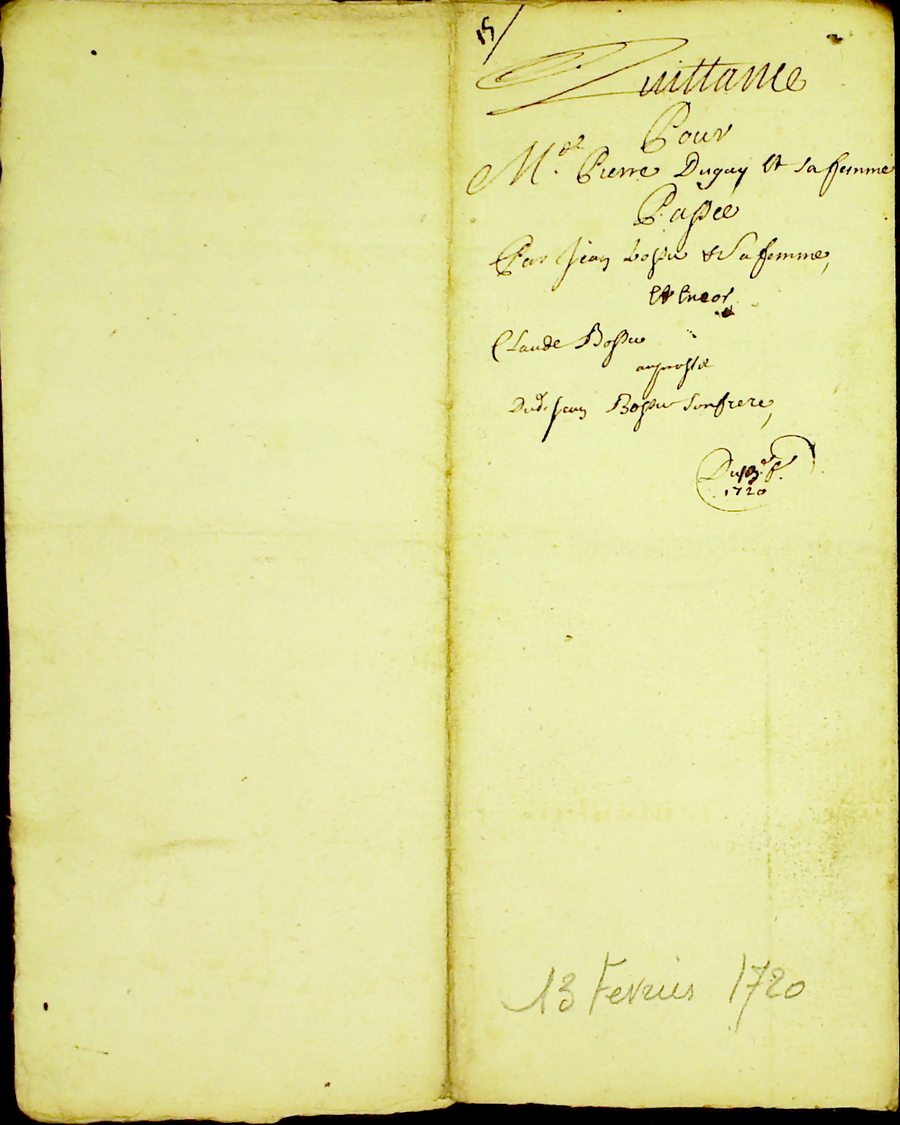 15/
Quittance
Pour
M.re Pierre Duguy Et sa femme
Passée
Par Jean Bossu & sa femme,
Et Encor
Claude Bossu
au proffit
Dud. Jean Bossu son frere,
Du 13.e f.r
1720
13 Fevrier 1720